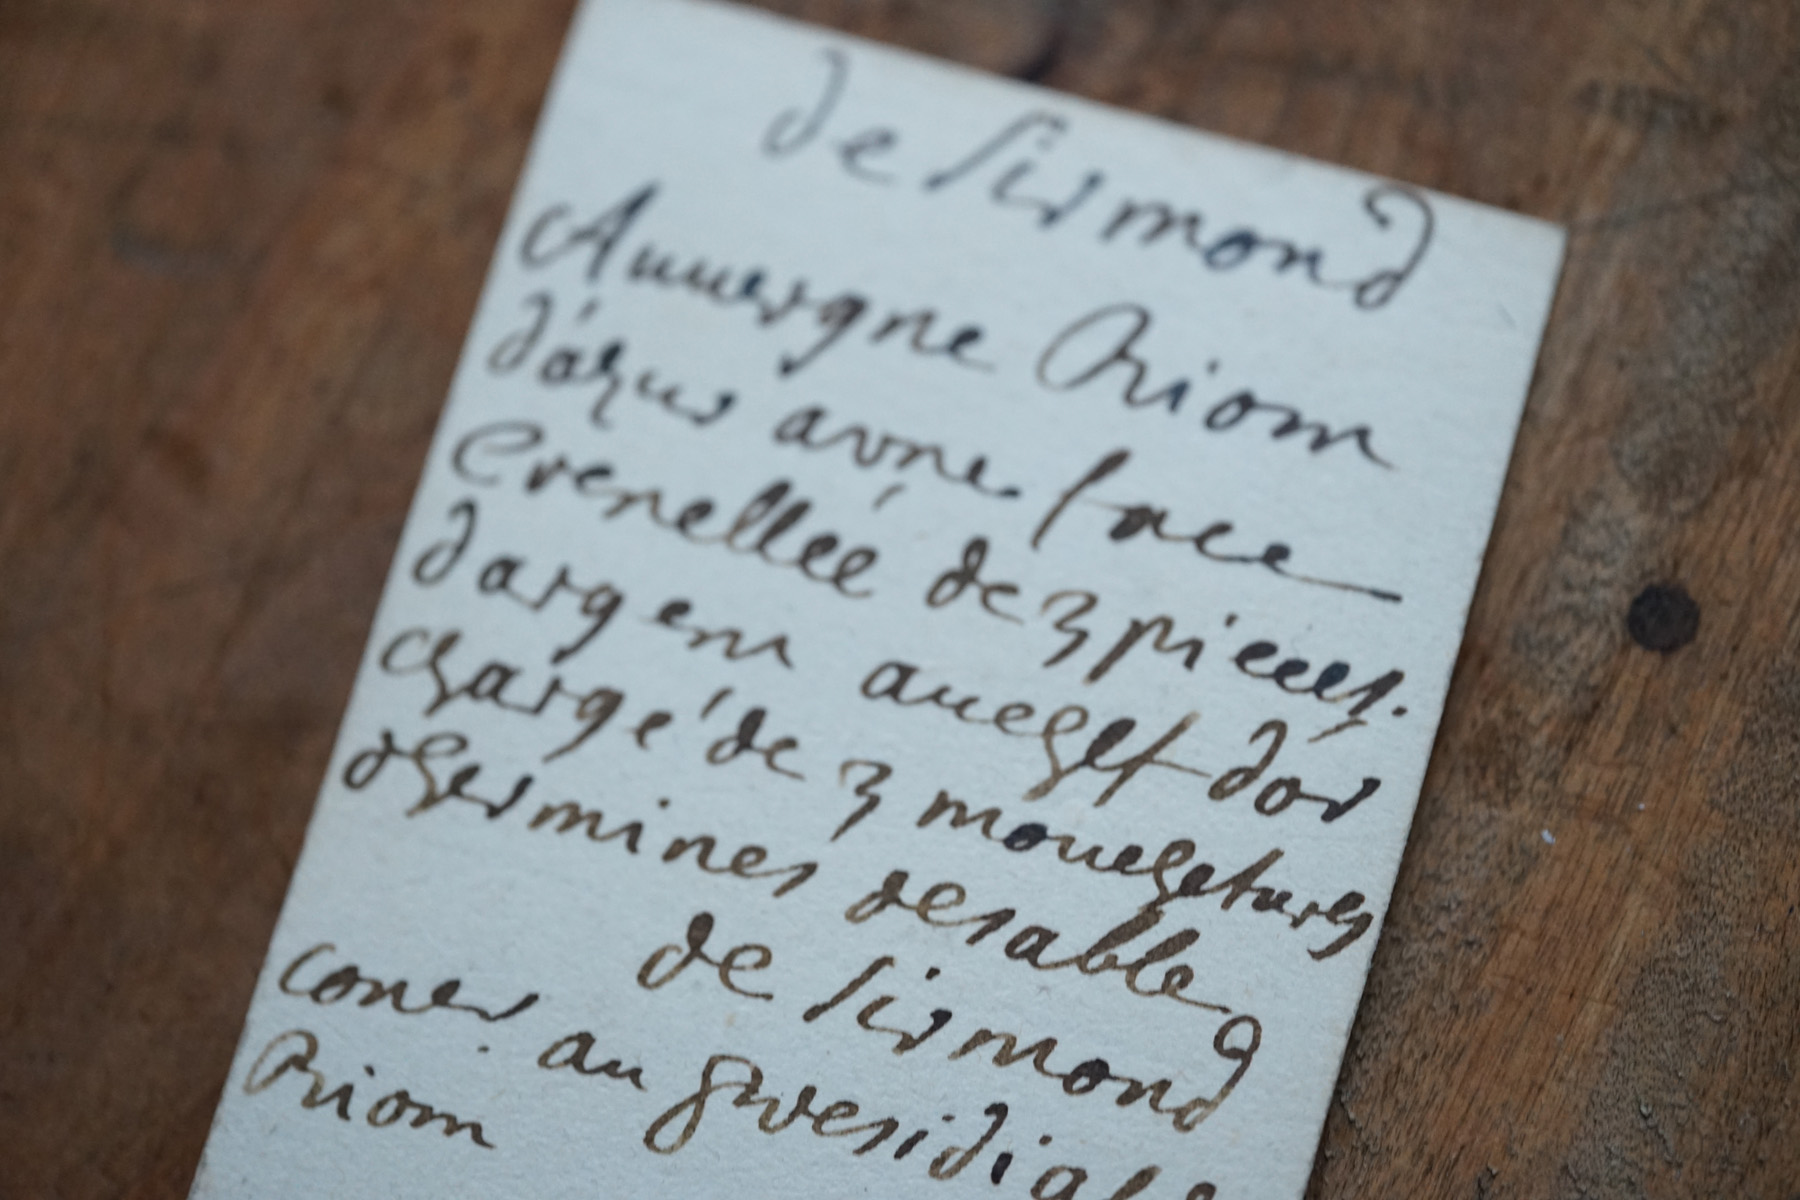 de sirmond
Auuergne Riom
d'azur avne face
Crenelleé de 3 pieces.
dargent auchef dor
chargé de 3 mouchetures
dhermines desable
de sirmond
coner au presidial
Riom